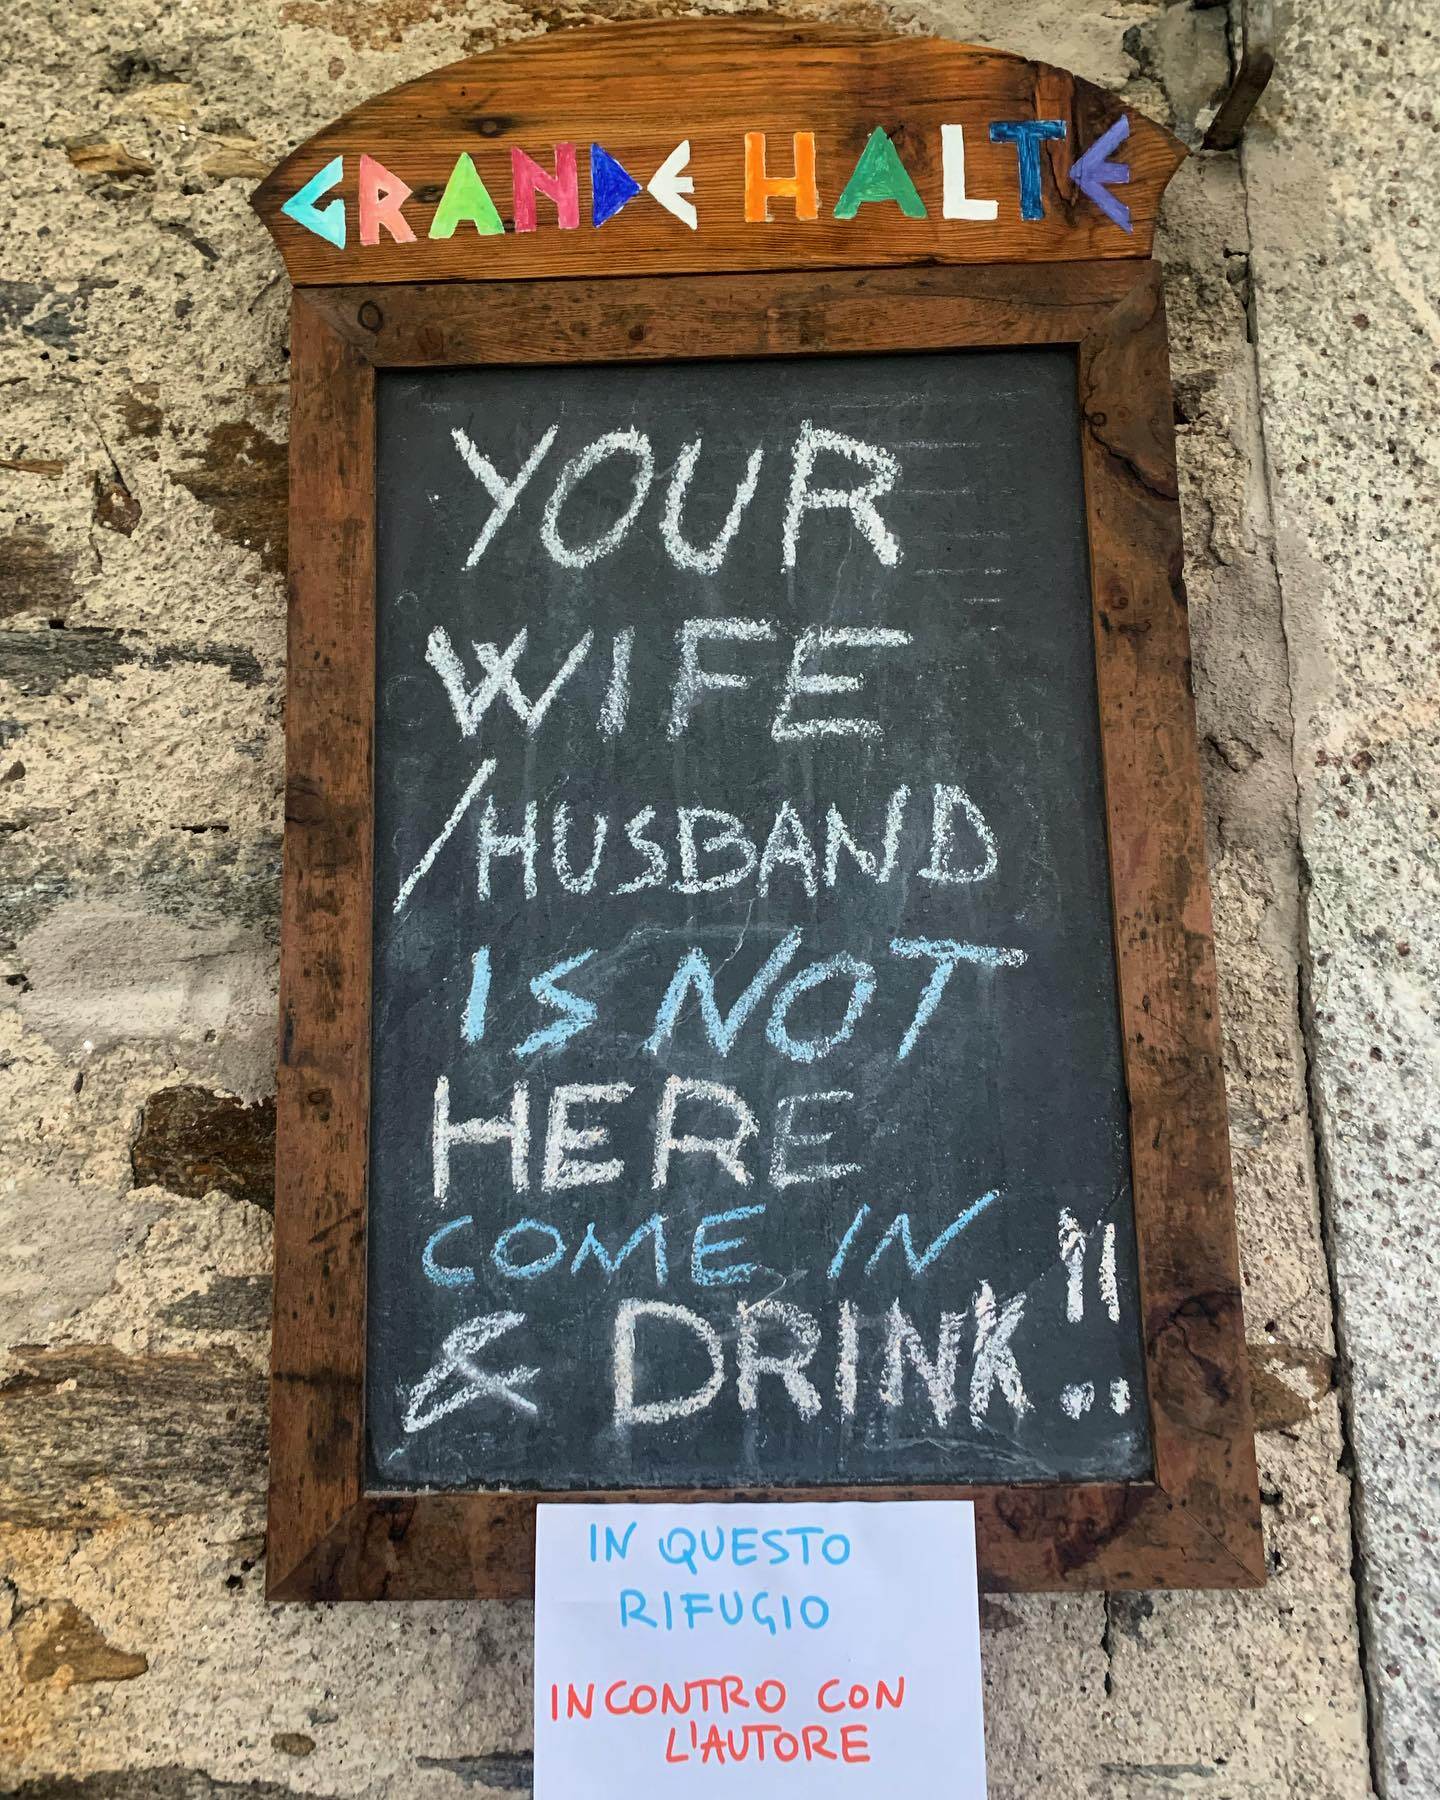 GRANDE HALTE
YOUR
WIFE
/HUSBAND
IS NOT
HERE
COME IN
& DRINK!!
IN QUESTO
RIFUGIO
INCONTRO CON
L'AUTORE